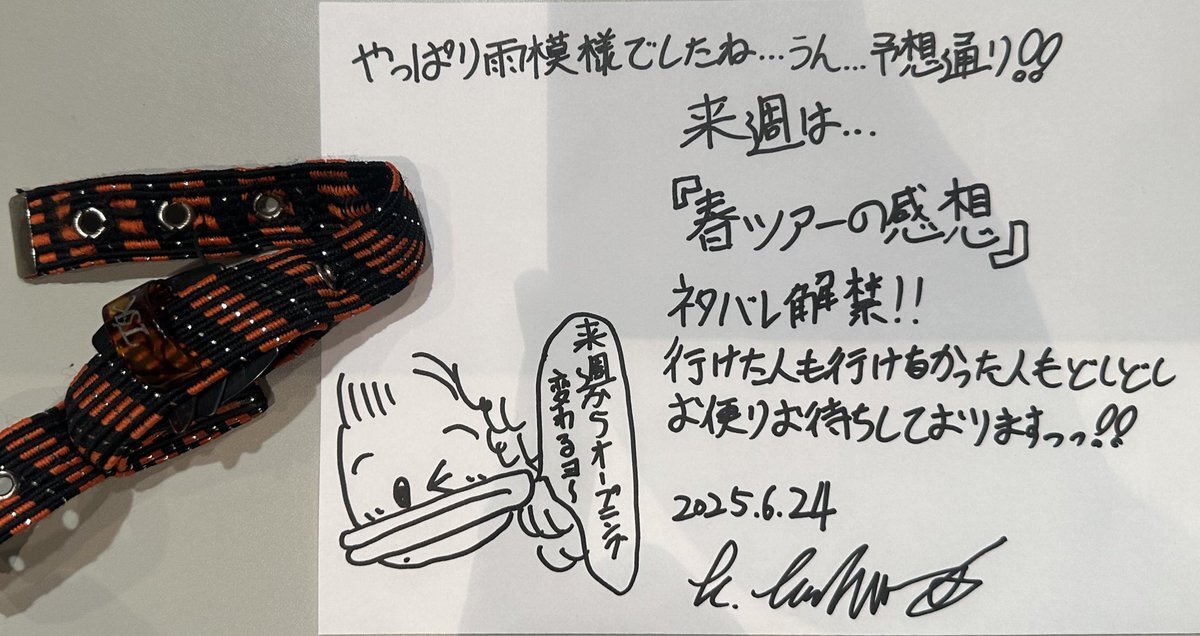 やっぱり雨模様でしたね…うん…予想通り!!
来週は…
『春ツアーの感想』
ネタバレ解禁!!
行けた人も行けなかった人もどしどし
お便りお待ちしておりますっっ!!
来週からオープニング
変わるヨ〜
2025.6.24